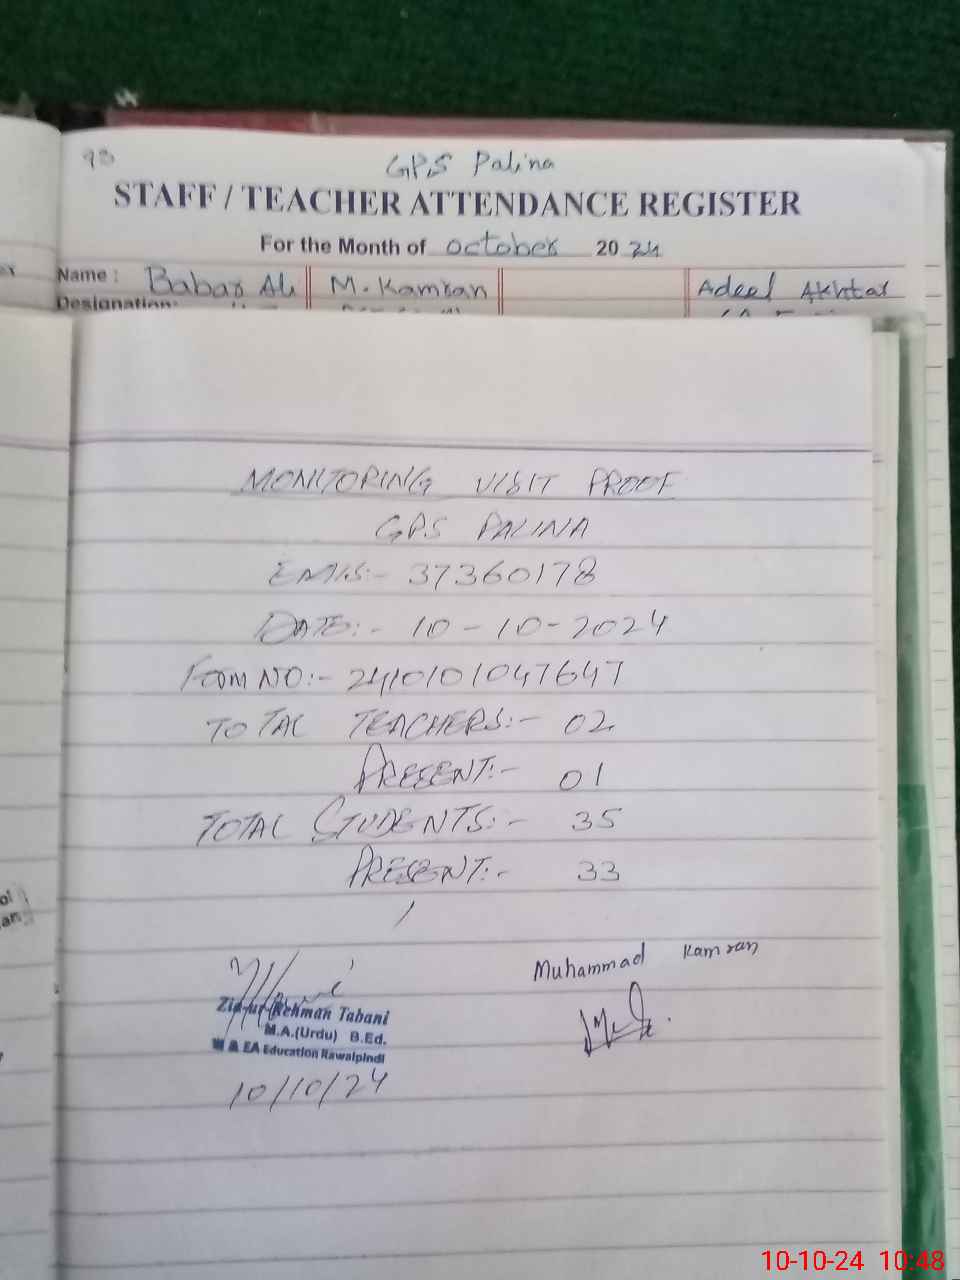 93
GPS Palina
STAFF / TEACHER ATTENDANCE REGISTER
For the Month of october 2024
Name : Babar Ali M. Kamran Adeel Akhtar
Designation:
MONITORING VISIT PROOF
GPS PALINA
EMIS:- 37360178
DATE:- 10-10-2024
FORM NO:- 2410101047647
TOTAL TEACHERS:- 02
PRESENT:- 01
TOTAL STUDENTS:- 35
PRESENT:- 33
Muhammad Kamran
Zia-ur-Rehman Tabani
M.A.(Urdu) B.Ed.
M & EA Education Rawalpindi
10/10/24
10-10-24 10:48